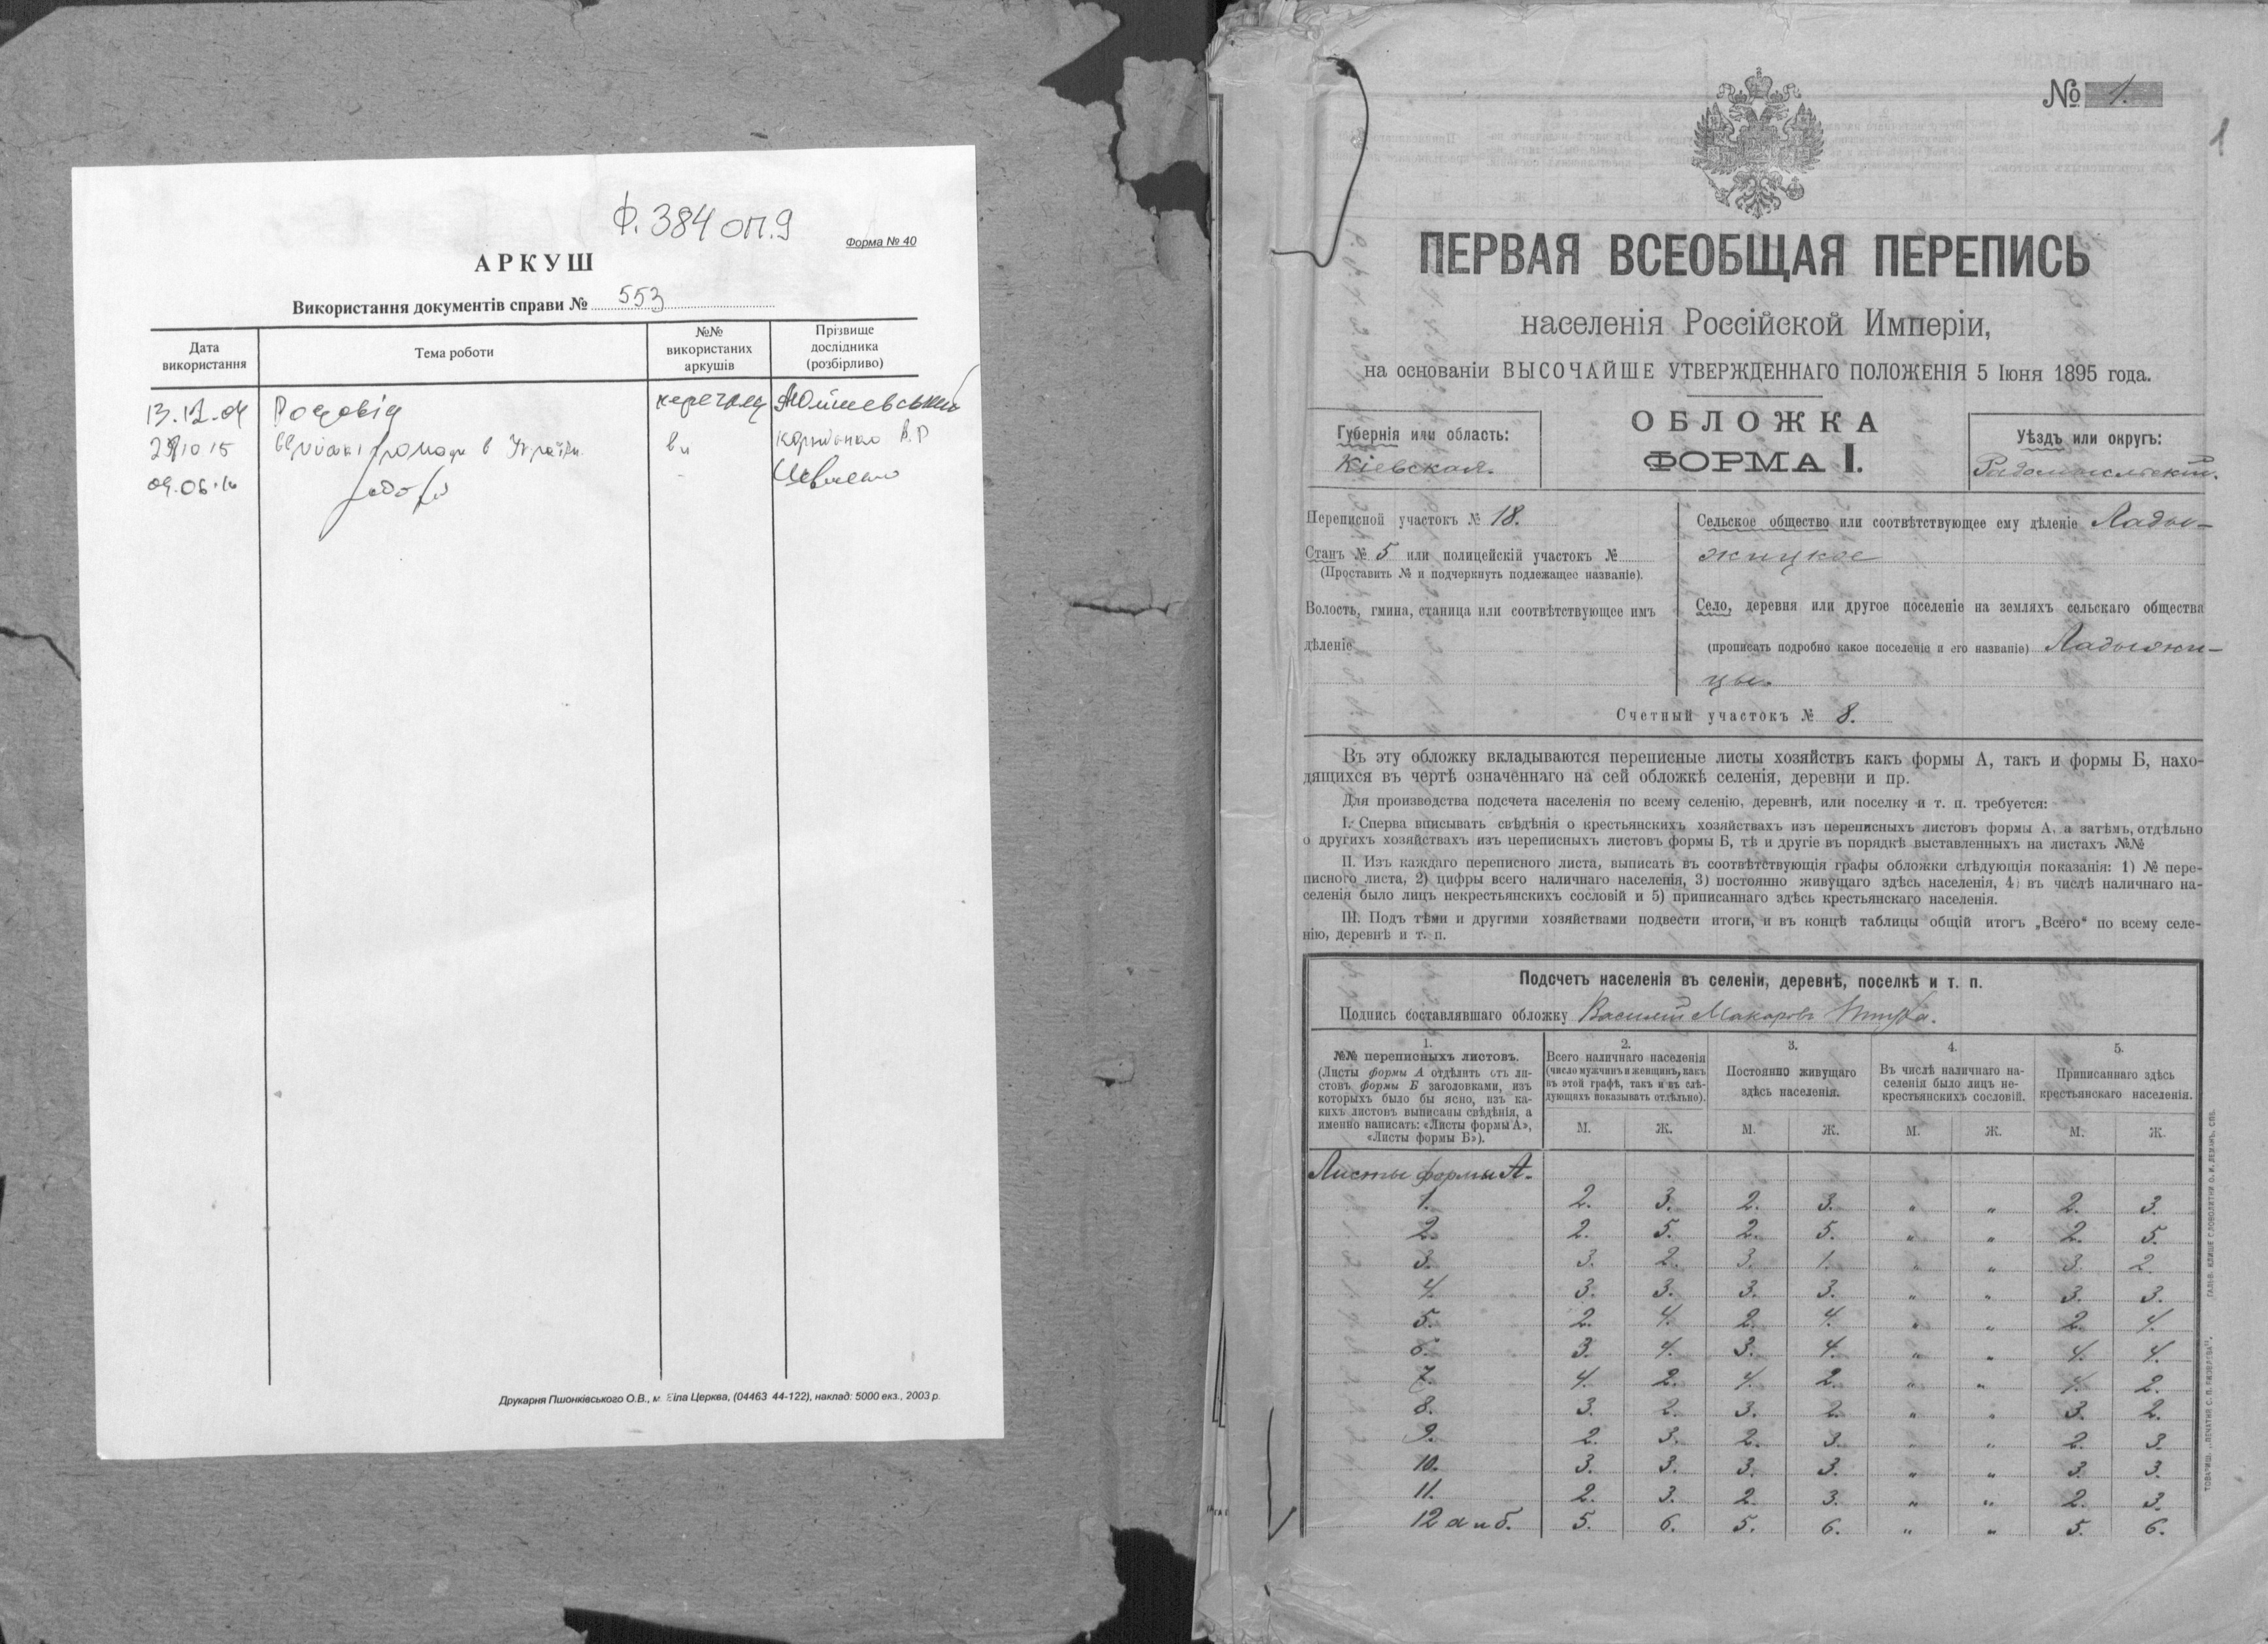 Ф. 384 оп. 9
Форма № 40
АРКУШ
Використання документів справи № 553
Дата використання
Тема роботи
№№ використаних аркушів
Прізвище дослідника (розбірливо)
13.12.04 Родовід
15 в Україні
04.06.16
Друкарня Пшонківського О.В., м. Біла Церква, (04463 44-122), наклад: 5000 екз., 2003 р.
№ 1.
1
ПЕРВАЯ ВСЕОБЩАЯ ПЕРЕПИСЬ
населенія Россійской Имперіи,
на основаніи ВЫСОЧАЙШЕ УТВЕРЖДЕННАГО ПОЛОЖЕНІЯ 5 Іюня 1895 года.
Губернія или область:
Кіевская.
ОБЛОЖКА
ФОРМА I.
Уѣздъ или округъ:
Радомысльскій.
Переписной участокъ № 18.
Станъ № 5 или полицейскій участокъ №
(Проставить № и подчеркнуть подлежащее названіе).
Волость, гмина, станица или соотвѣтствующее имъ
дѣленіе
Сельское общество или соотвѣтствующее ему дѣленіе Лады-
жицкое
Село, деревня или другое поселеніе на земляхъ сельскаго общества
(прописать подробно какое поселеніе и его названіе) Ладыжи-
цы.
Счетный участокъ № 8.
Въ эту обложку вкладываются переписные листы хозяйствъ какъ формы А, такъ и формы Б, нахо-
дящихся въ чертѣ означеннаго на сей обложкѣ селенія, деревни и пр.
Для производства подсчета населенія по всему селенію, деревнѣ, или поселку и т. п. требуется:
I. Сперва вписывать свѣдѣнія о крестьянскихъ хозяйствахъ изъ переписныхъ листовъ формы А, а затѣмъ, отдѣльно
о другихъ хозяйствахъ изъ переписныхъ листовъ формы Б, тѣ и другіе въ порядкѣ выставленныхъ на листахъ №№
II. Изъ каждаго переписного листа, выписать въ соотвѣтствующія графы обложки слѣдующія показанія: 1) № пере-
писного листа, 2) цифры всего наличнаго населенія, 3) постоянно живущаго здѣсь населенія, 4) въ числѣ наличнаго на-
селенія было лицъ некрестьянскихъ сословій и 5) приписаннаго здѣсь крестьянскаго населенія.
III. Подъ тѣми и другими хозяйствами подвести итоги, и въ концѣ таблицы общій итогъ „Всего“ по всему селе-
нію, деревнѣ и т. п.
Подсчетъ населенія въ селеніи, деревнѣ, поселкѣ и т. п.
Подпись составлявшаго обложку Василій Макаровъ
1.
№№ переписныхъ листовъ.
(Листы формы А отдѣлить отъ ли-
стовъ формы Б заголовками, изъ
которыхъ было бы ясно, изъ ка-
кихъ листовъ выписаны свѣдѣнія, а
именно написать: «Листы формы А»,
«Листы формы Б»).
2.
Всего наличнаго населенія
(число мужчинъ и женщинъ, какъ
въ этой графѣ, такъ и въ слѣ-
дующихъ показывать отдѣльно).
3.
Постоянно живущаго
здѣсь населенія.
4.
Въ числѣ наличнаго на-
селенія было лицъ не-
крестьянскихъ сословій.
5.
Приписаннаго здѣсь
крестьянскаго населенія.
М. Ж. М. Ж. М. Ж. М. Ж.
Листы формы А.
1. 2. 3. 2. 3. „ „ 2. 3.
2. 2. 5. 2. 5. „ „ 2. 5.
3. 3. 2. 3. 1. „ „ 3. 2.
4. 3. 3. 3. 3. „ „ 3. 3.
5. 2. 4. 2. 4. „ „ 2. 4.
6. 3. 4. 3. 4. „ „ 4. 4.
7. 4. 2. 4. 2. „ „ 4. 2.
8. 3. 2. 3. 2. „ „ 3. 2.
9. 2. 3. 2. 3. „ „ 2. 3.
10. 3. 3. 3. 3. „ „ 3. 3.
11. 2. 3. 2. 3. „ „ 2. 3.
12 а и б. 5. 6. 5. 6. „ „ 5. 6.